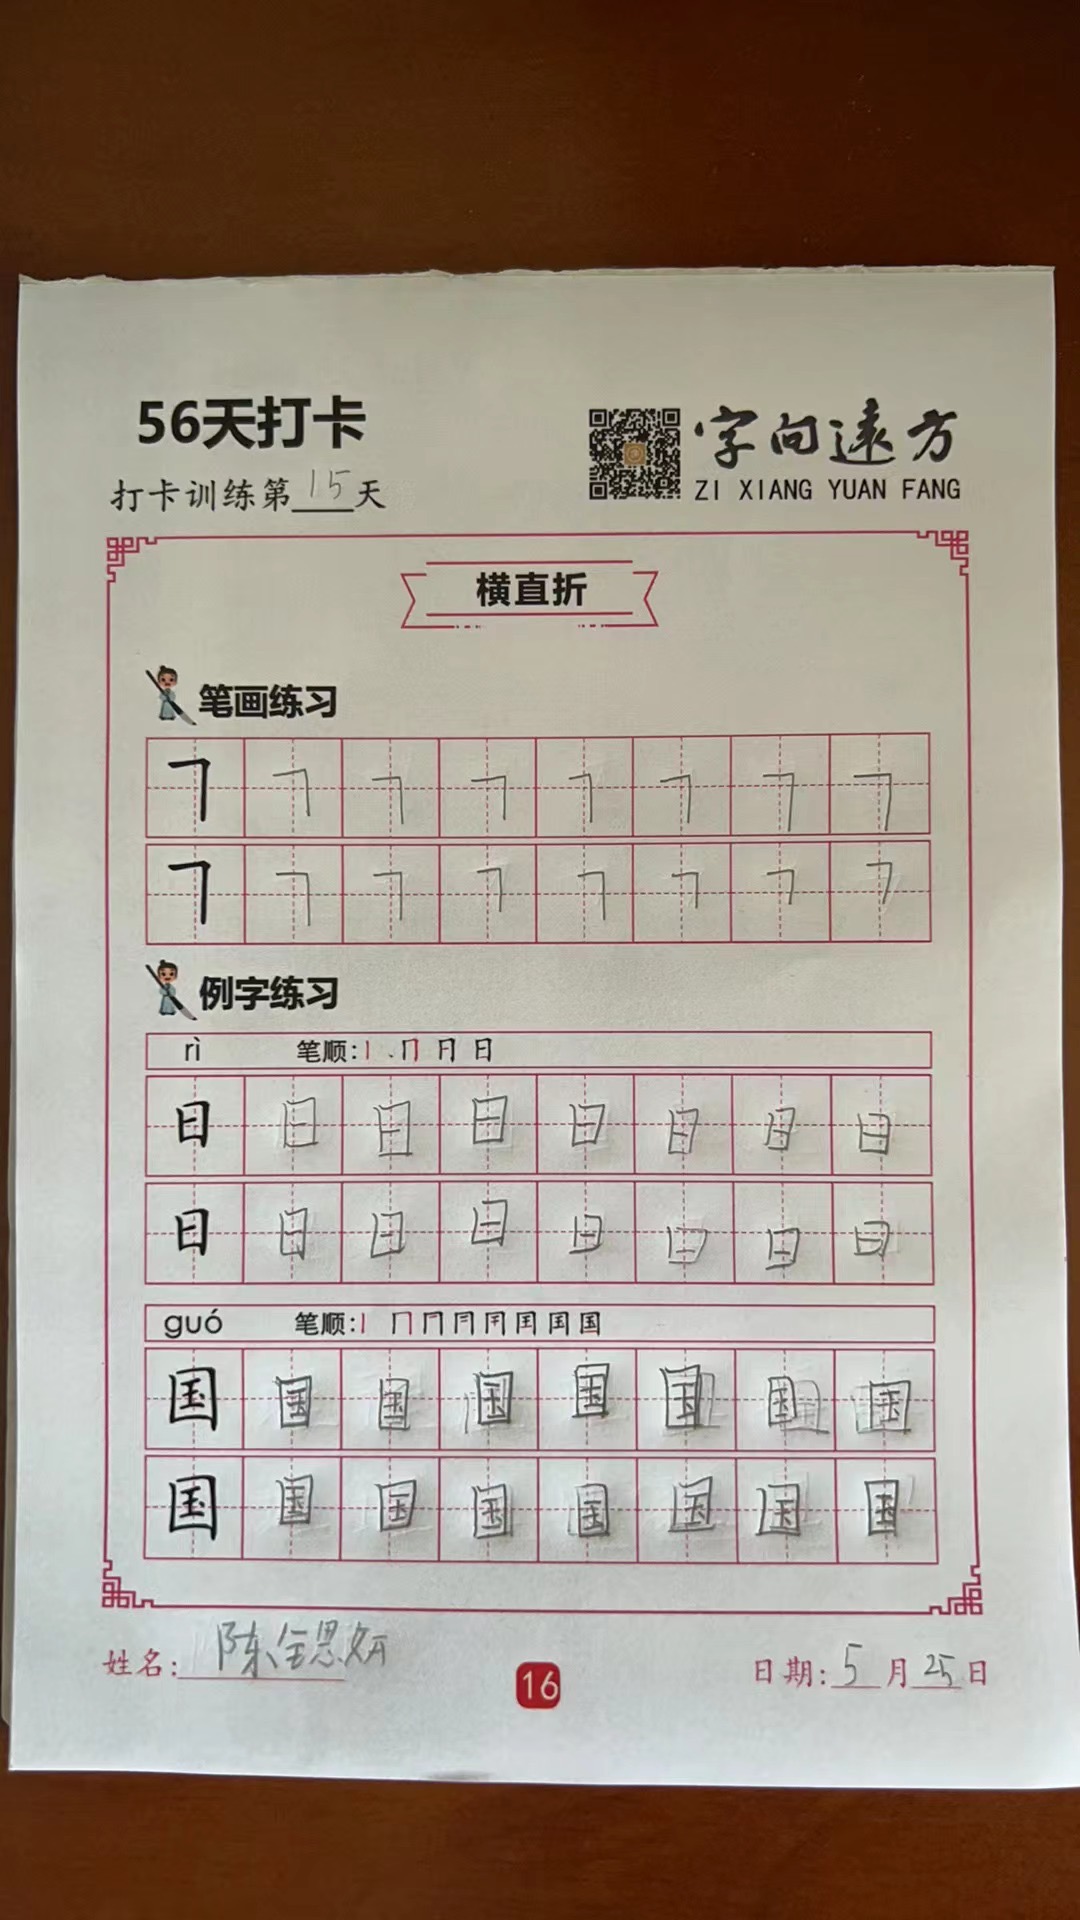 56天打卡
打卡训练第15天
字向远方
ZI XIANG YUAN FANG
横直折
笔画练习
㇕ ㇕ ㇕ ㇕ ㇕ ㇕ ㇕ ㇕
㇕ ㇕ ㇕ ㇕ ㇕ ㇕ ㇕ ㇕
例字练习
rì 笔顺: 丨 冂 月 日
日 日 日 日 日 日 日 日
日 日 日 日 日 日 日 日
guó 笔顺: 丨 冂 国
国 国 国 国 国 国 国 国
国 国 国 国 国 国 国 国
姓名: 陈全思妍
16
日期: 5月25日